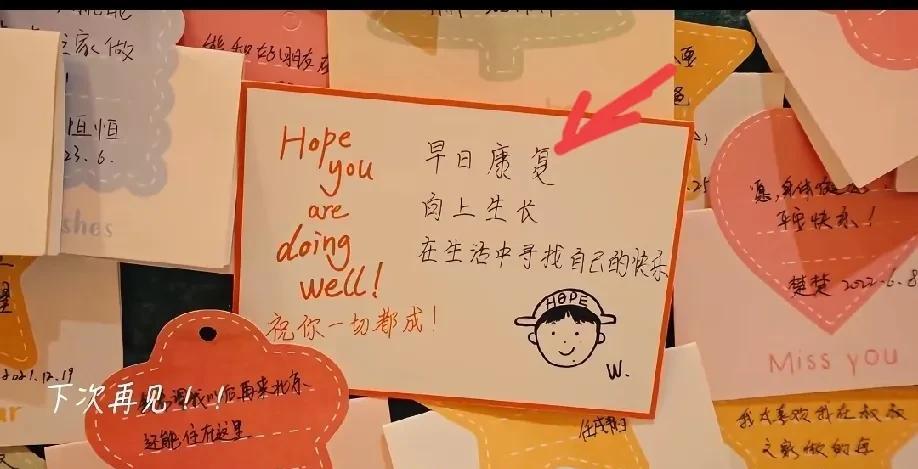 Hope
you
are
doing
well!
祝你一切都成!
早日康复
向上生长
在生活中寻找自己的快乐
HOPE
W.
家做
恒恒
23.6.
shes
和好朋友
平安快乐!
楚楚 2022.6.8
Miss you
2021.12.19
下次再见!!
以后再来北京、
还能住在这里
我太喜欢我在叔叔
家做的